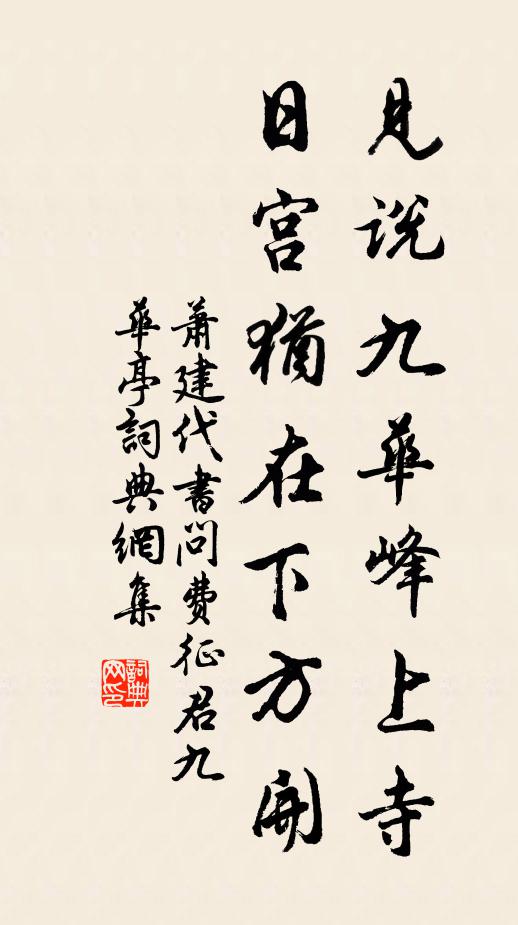 見説九華峰上寺
日宮猶在下方開
蕭建代書問費征君九
華亭詞典網集
詞典网印